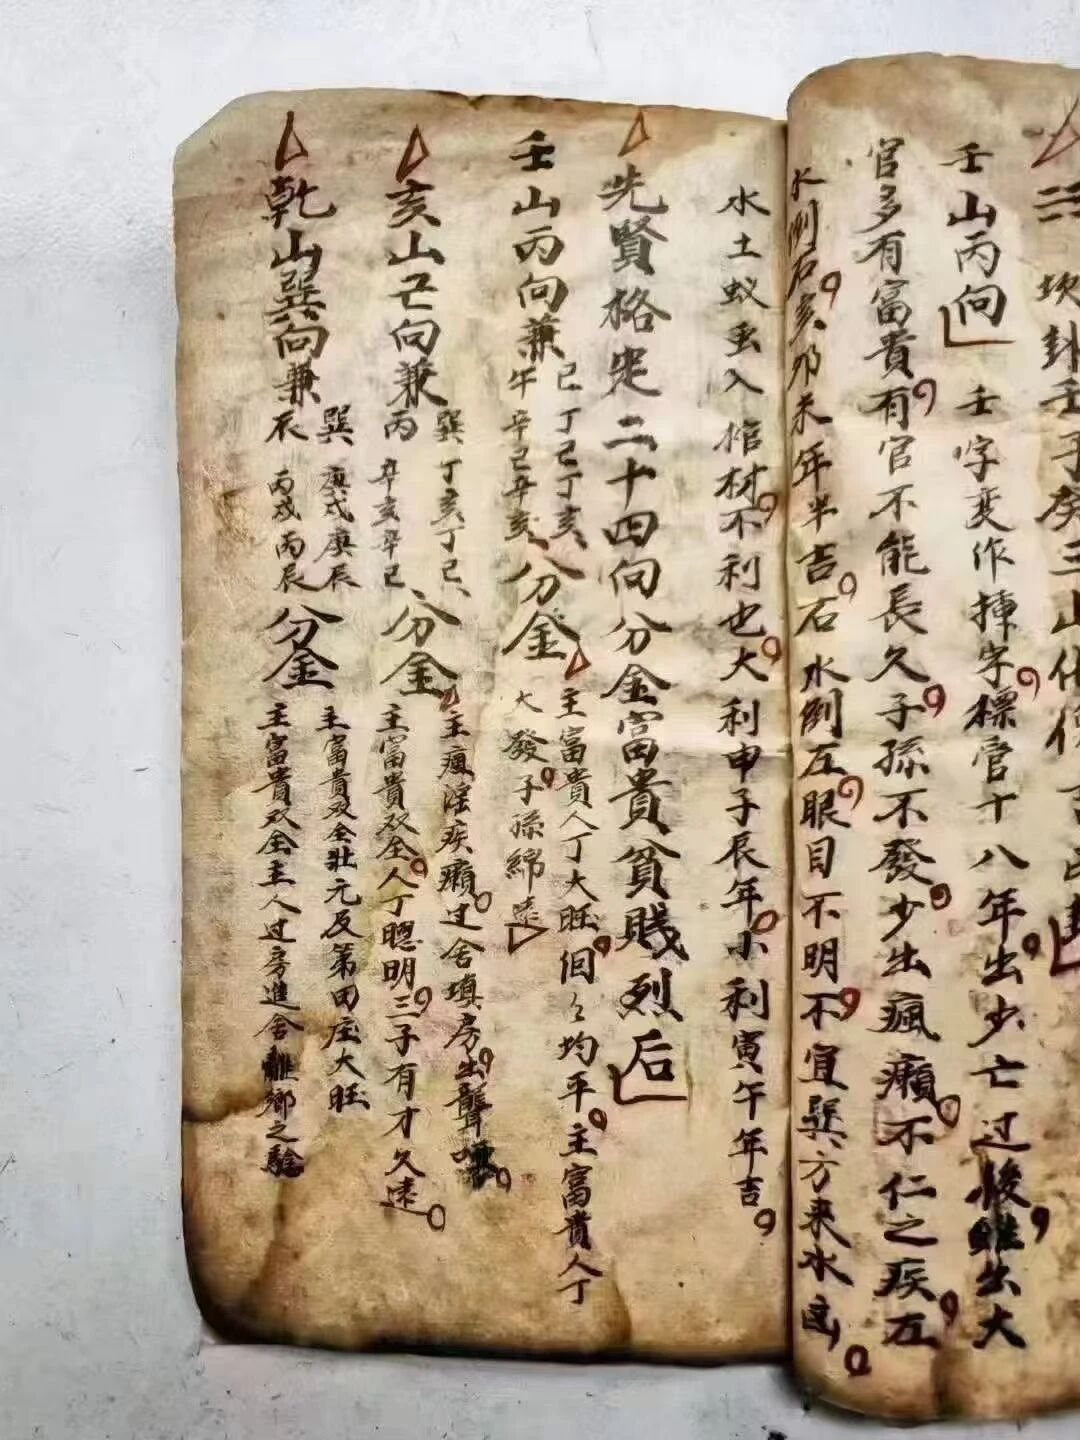 坎卦壬子癸三山
壬山丙向
壬字变作揮字標官十八年出少亡过後雖出大
官多有富貴有官不能長久子孫不發少出瘋癩不仁之疾左
水倒右亥卯未年半吉右水倒左眼目不明不宜巽方来水凶
水土蚁虫入棺材不利也大利申子辰年小利寅午年吉
先賢格定二十四向分金富貴貧賤烈后
壬山丙向兼
巳丁巳丁亥
午辛巳辛亥
分金
主富貴人丁大旺個々均平主富貴人丁
大發子孫綿遠
亥山巳向兼
巽丁亥丁巳
丙辛亥辛巳
分金
主瘋淫疾癩过舍填房出聾
主富貴双全人丁聰明三子有才久遠
乾山巽向兼
巽庚戌庚辰
辰丙戌丙辰
分金
主富貴双全壯元及第田庄大旺
主富貴双全主人过房進舍離鄉之驗